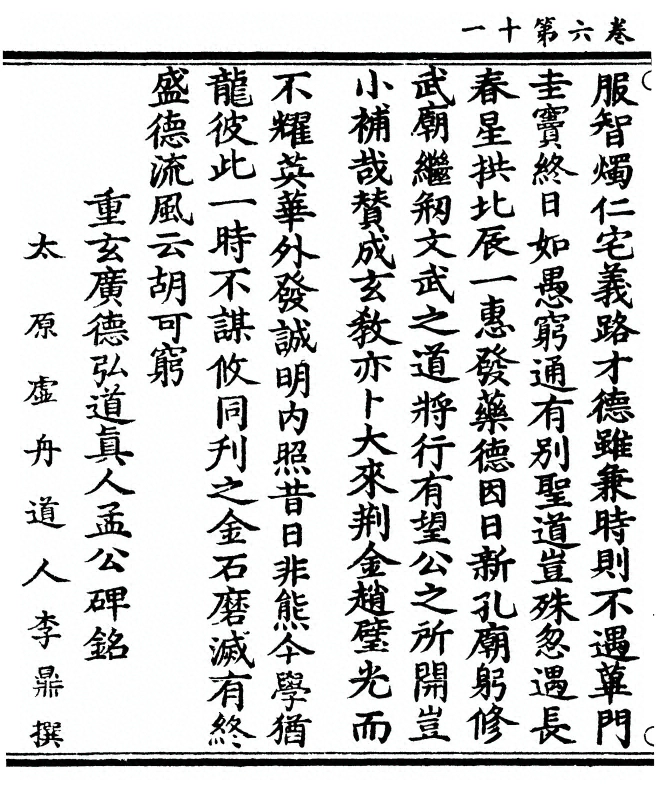 卷六第十一
服智燭仁宅義路才德雖兼時則不遇蓽門
圭竇終日如愚窮通有別聖道豈殊忽遇長
春星拱北辰一惠發藥德因日新孔廟躬修
武廟繼剏文武之道將行有望公之所開豈
小補哉贊成玄教亦卜大來荆金趙璧光而
不耀英華外發誠明內照昔日非熊今學猶
龍彼此一時不謀攸同刋之金石磨滅有終
盛德流風云胡可窮
重玄廣德弘道眞人孟公碑銘
太原虛舟道人李鼎撰